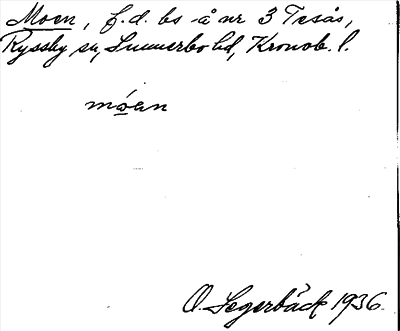 Moen, f.d. bs å nr 3 Tesås,
Ryssby sn, Sunnerbo hd, Kronob. l.
móen
O. Segerbäck 1936.